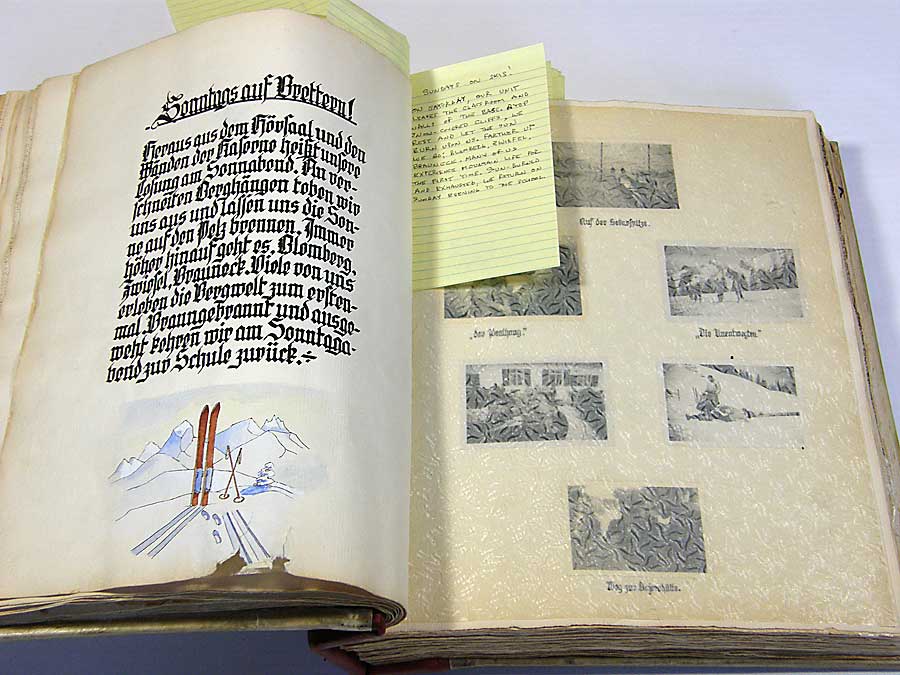 Sonntags auf Brettern!
Heraus aus dem Hörsaal und den
Wänden der Kaserne heißt unsere
Losung am Sonnabend. An ver-
schneiten Berghängen toben wir
uns aus und lassen uns die Son-
ne auf den Pelz brennen. Immer
höher hinauf geht es. Blomberg,
Zwiesel, Brauneck. Viele von uns
erleben die Bergwelt zum ersten-
mal. Braungebrannt und ausge-
weht kehren wir am Sonntaga-
bend zur Schule zurück.
SUNDAYS ON SKIS!
ON SATURDAY, OUR UNIT
LEAVES THE CLASSROOM AND
WALLS OF THE BASE. ATOP
SNOW-COVERED CLIFFS, WE
REST AND LET THE SUN
BURN UPON US. FARTHER UP
WE GO; BLOMBERG, ZWIESEL,
BRAUNECK. MANY OF US
EXPERIENCE MOUNTAIN LIFE FOR
THE FIRST TIME. SUN-BURNED
AND EXHAUSTED, WE RETURN ON
SUNDAY EVENING TO THE SCHOOL
Auf der
"Die Unentwegten"
Weg zur